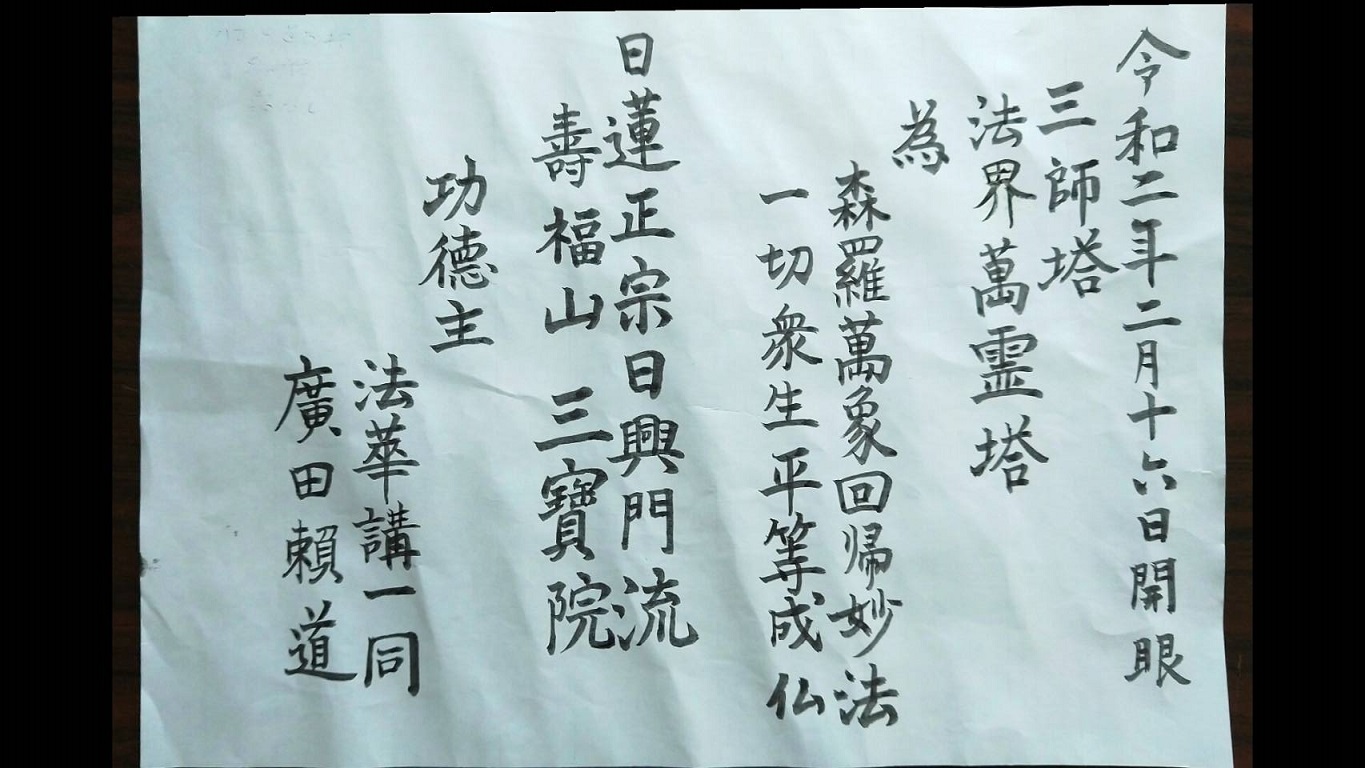 令和二年二月十六日開眼
三師塔
法界萬霊塔
為
森羅萬象回帰妙法
一切衆生平等成仏
日蓮正宗日興門流
壽福山 三寶院
功德主
法華講一同
廣田頼道